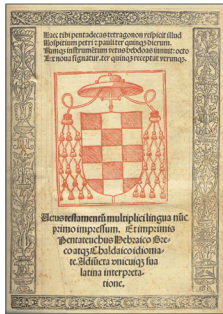 Haec tibi pentadecas tetragonon respicit illud
Hospitium petri & pauli ter quinq; dierum.
Namq; instrumentum vetus hebdoas innuit: octo
Lex noua signatur. ter quinq; receptat vtrunq;.
Uetus testamentũ multiplici lingua nũc
primo impressum. Et imprimis
Pentateuchus Hebraico Gre-
co atq; Chaldaico idioma-
te. Adiũcta vnicuiq; sua
latina interpreta-
tione.